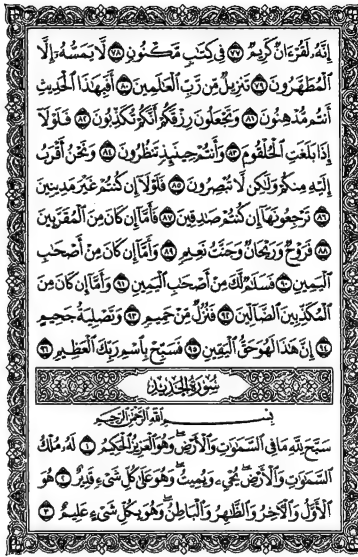 إِنَّهُ لَقُرْءَانٌ كَرِيمٌ ٧٧ فِي كِتَٰبٍ مَّكْنُونٍ ٧٨ لَّا يَمَسُّهُ إِلَّا
الْمُطَهَّرُونَ ٧٩ تَنزِيلٌ مِّن رَّبِّ الْعَٰلَمِينَ ٨٠ أَفَبِهَٰذَا الْحَدِيثِ
أَنتُم مُّدْهِنُونَ ٨١ وَتَجْعَلُونَ رِزْقَكُمْ أَنَّكُمْ تُكَذِّبُونَ ٨٢ فَلَوْلَا
إِذَا بَلَغَتِ الْحُلْقُومَ ٨٣ وَأَنتُمْ حِينَئِذٍ تَنظُرُونَ ٨٤ وَنَحْنُ أَقْرَبُ
إِلَيْهِ مِنكُمْ وَلَٰكِن لَّا تُبْصِرُونَ ٨٥ فَلَوْلَا إِن كُنتُمْ غَيْرَ مَدِينِينَ
٨٦ تَرْجِعُونَهَا إِن كُنتُمْ صَٰدِقِينَ ٨٧ فَأَمَّا إِن كَانَ مِنَ الْمُقَرَّبِينَ
٨٨ فَرَوْحٌ وَرَيْحَانٌ وَجَنَّتُ نَعِيمٍ ٨٩ وَأَمَّا إِن كَانَ مِنْ أَصْحَٰبِ
الْيَمِينِ ٩٠ فَسَلَٰمٌ لَّكَ مِنْ أَصْحَٰبِ الْيَمِينِ ٩١ وَأَمَّا إِن كَانَ مِنَ
الْمُكَذِّبِينَ الضَّالِّينَ ٩٢ فَنُزُلٌ مِّنْ حَمِيمٍ ٩٣ وَتَصْلِيَةُ جَحِيمٍ
٩٤ إِنَّ هَٰذَا لَهُوَ حَقُّ الْيَقِينِ ٩٥ فَسَبِّحْ بِاسْمِ رَبِّكَ الْعَظِيمِ ٩٦
سُورَةُ الْحَدِيدِ
بِسْمِ اللَّهِ الرَّحْمَٰنِ الرَّحِيمِ
سَبَّحَ لِلَّهِ مَا فِي السَّمَٰوَٰتِ وَالْأَرْضِ وَهُوَ الْعَزِيزُ الْحَكِيمُ ١ لَهُ مُلْكُ
السَّمَٰوَٰتِ وَالْأَرْضِ يُحْيِۦ وَيُمِيتُ وَهُوَ عَلَىٰ كُلِّ شَيْءٍ قَدِيرٌ ٢ هُوَ
الْأَوَّلُ وَالْءَاخِرُ وَالظَّٰهِرُ وَالْبَاطِنُ وَهُوَ بِكُلِّ شَيْءٍ عَلِيمٌ ٣